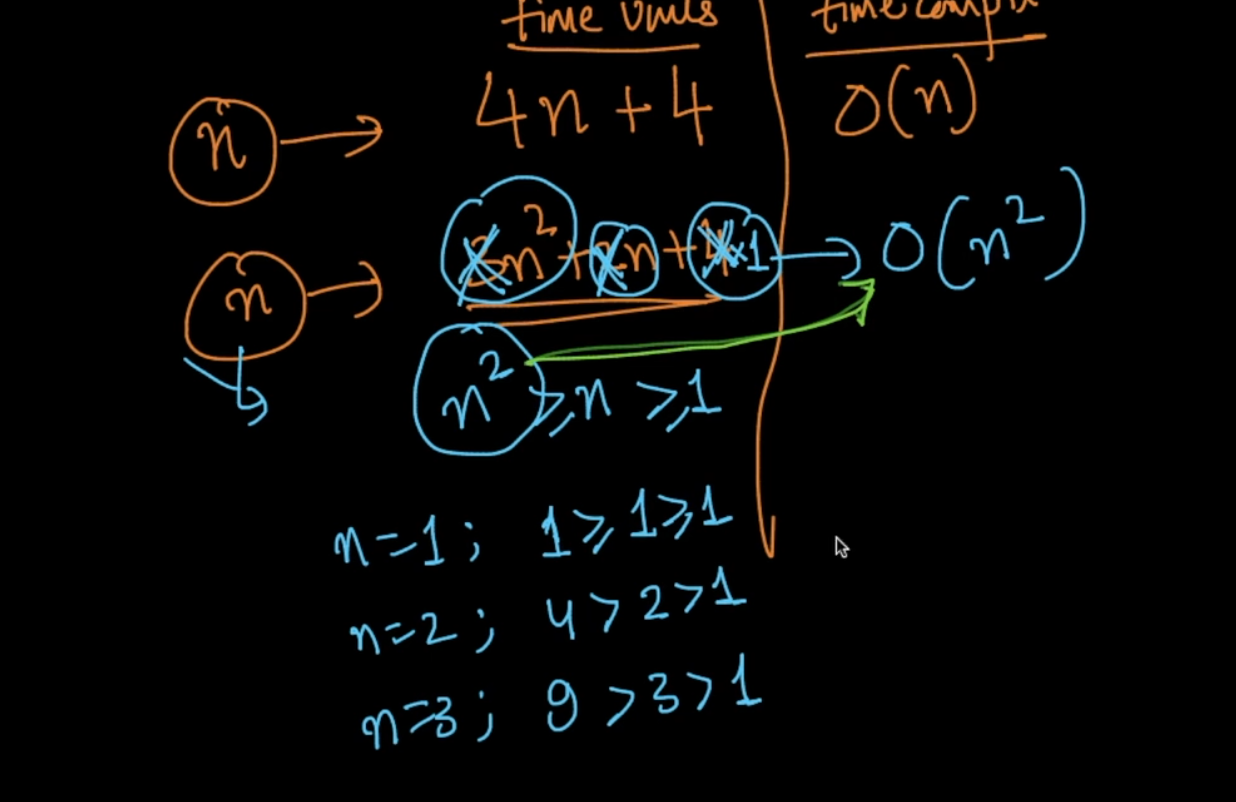 time units time compl
n → 4n + 4 O(n)
n → 3n² + n + 4×1 → O(n²)
n² ≥ n ≥ 1
n=1; 1 ≥ 1 ≥ 1
n=2; 4 > 2 > 1
n=3; 9 > 3 > 1